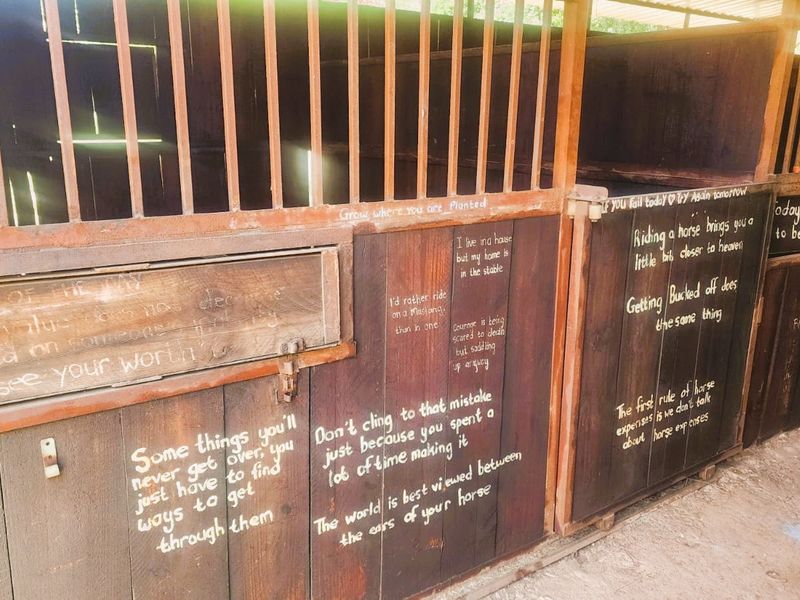 Grow where you are Planted
If you Fail today try Again tomorrow
I live in a house
but my home is
in the stable
I'd rather ride
on a Mustang
than in one
Courage is being
scared to death
but saddling
up anyway
value does not decrease
see your worth
Some things you'll
never get over, you
just have to find
ways to get
through them
Don't cling to that mistake
just because you spent a
lot of time making it
The world is best viewed between
the ears of your horse
Riding a horse brings you a
little bit closer to heaven
Getting Bucked off does
the same thing
The first rule of horse
expenses is we don't talk
about horse expenses
Today
to be